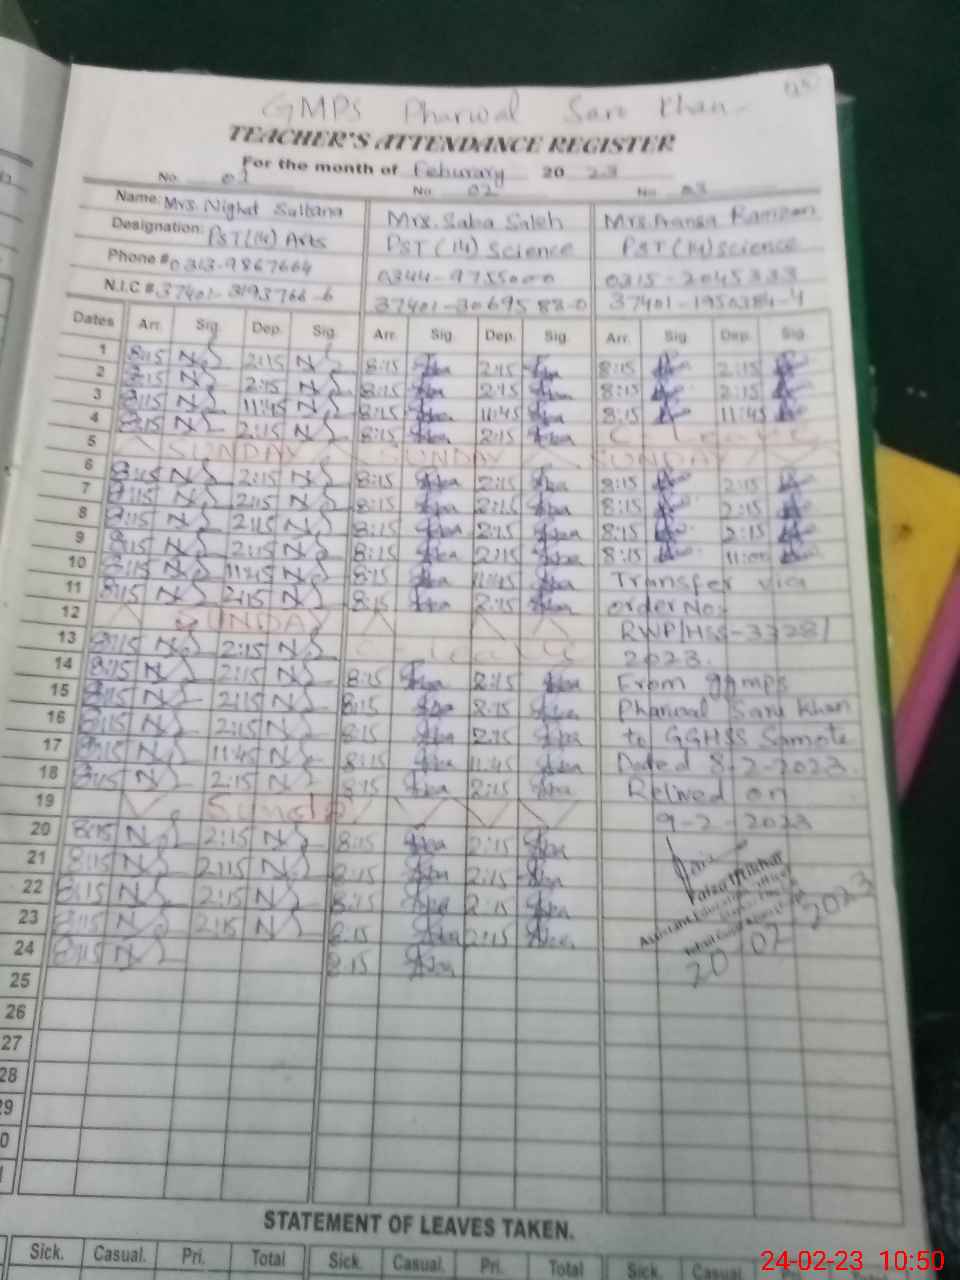 GMPS Pharwal Saro Khan
TEACHER'S ATTENDANCE REGISTER
For the month of Feburary 2023
No. 01 No. 02 No. 03
Name: Mrs. Nighat Sultana Mrs. Saba Saleh Mrs. Ramzan
Designation: PST (14) Arts PST (14) Science PST (14) science
Phone # 0313-9867664 0344-9755000 0315-2045333
N.I.C #. 37401-3193766-6 37401-3069588-0 37401-1950384-4
Dates Arr. Sig. Dep. Sig. Arr. Sig. Dep. Sig. Arr. Sig. Dep. Sig.
1 8:15 NS 2:15 NS 8:15 2:15 8:15 2:15
2 8:15 NS 2:15 NS 8:15 2:15 8:15 2:15
3 8:15 NS 11:45 NS 8:15 11:45 8:15 11:45
4 8:15 NS 2:15 NS 8:15 2:15 C Leave
5 SUNDAY SUNDAY SUNDAY
6 8:15 NS 2:15 NS 8:15 2:15 8:15 2:15
7 8:15 NS 2:15 NS 8:15 2:15 8:15 2:15
8 8:15 NS 2:15 NS 8:15 2:15 8:15 2:15
9 8:15 NS 2:15 NS 8:15 2:15 8:15 11:00
10 8:15 NS 11:45 NS 8:15 11:45 Transfer via
11 8:15 NS 2:15 NS 8:15 2:15 order No:
12 SUNDAY RWP/HSS-3328/
13 8:15 NS 2:15 NS C Leave 2023.
14 8:15 NS 2:15 NS 8:15 2:15 From gmps
15 8:15 NS 2:15 NS 8:15 2:15 Pharwal Saro Khan
16 8:15 NS 2:15 NS 8:15 2:15 to GGHSS Samote
17 8:15 NS 11:45 NS 8:15 11:45 Dated 8-2-2023.
18 8:15 NS 2:15 NS 8:15 2:15 Relived on
19 Sunday 9-2-2023
20 8:15 NS 2:15 NS 8:15 2:15
21 8:15 NS 2:15 NS 2:15 2:15
22 8:15 NS 2:15 NS 8:15 2:15
23 8:15 NS 2:15 NS 8:15 2:15
24 8:15 NS 8:15
20 02 2023
25
26
27
28
29
STATEMENT OF LEAVES TAKEN.
Sick. Casual. Pri. Total Sick. Casual. Pri. Total Sick. Casual.
24-02-23 10:50